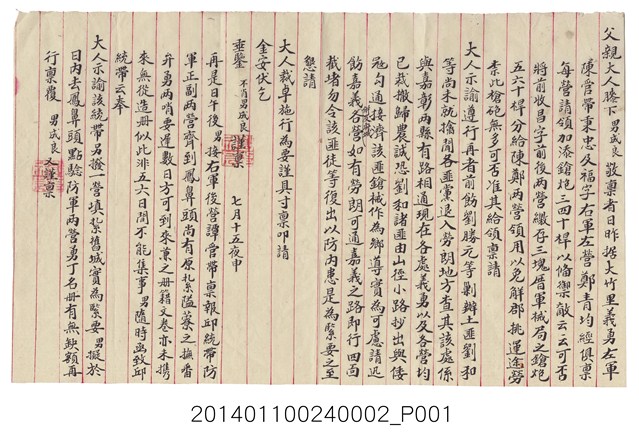 父親大人膝下男成良敬稟者日昨据大竹里義勇左軍
陳營帶秉忠及福字右軍左營鄭青均經俱稟
每營請領加添鎗炮三四十桿以備禦敵云云可否
將前收昌字前後兩營繳存三塊厝軍械局之鎗炮
五六十桿分給陳鄭兩營領用以免解郡挑運途勞
柰此槍砲無多可否准其給領稟請
大人示諭遵行再者前飭劉勝元等剿辦土匪劉和
等尚未就擒聞各匪黨退入勞朗地方查其該處係
與嘉彰兩縣有路相通現在各處義勇以及各營均
已裁撤歸農誠恐劉和諸匪由山徑小路抄出與倭
勾通接濟該匪鎗械作為鄉導實為可慮請迅
飭嘉義各營如有勞朗可通嘉義之路即行四面
截堵勿令該匪徒等復出以防內患是為緊要之至
懇請
大人裁奪施行為要謹具寸稟叩請
金安伏乞
垂鑒 不肖男成良謹稟 七月十五夜申
再是日午後男接右軍後營譚管帶稟報邱統帶防
軍正副兩營齊到鳳鼻頭尚有原紮隘藔之撫番
弁勇兩哨要遲數日方可到來兼之冊籍文卷亦未携
來無從造冊似此非五六日間不能集事男隨時函致邱
統帶云奉
大人示諭該統帶另撥一營填紮舊城實為緊要男擬於
日內去鳳鼻頭點驗防軍兩營勇丁名冊有無缺額再
行稟覆 男成良又謹稟
201401100240002_P001